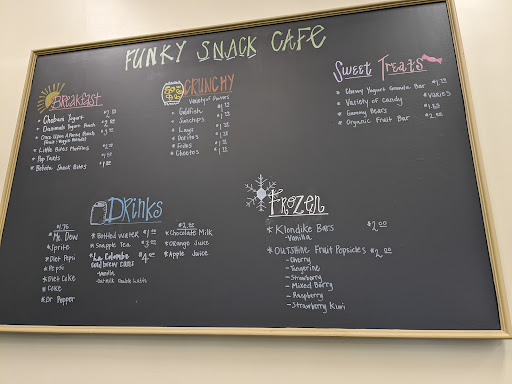 FUNKY SNACK CAFE
BREAKFAST
* Chobani Yogurt
* Danimals Yogurt Pouch
* Once Upon A Farm Pouch
(Fruit + Veggie Blends)
* Little Bites Muffins
* Pop Tarts
* Belvita Snack Bites
CRUNCHY
Variety of Flavors
* Goldfish
* Sunchips
* Lays
* Doritos
* Fritos
* Cheetos
Sweet Treats
* Chewy Yogurt Granola Bar
* Variety of Candy *VARIES
* Gummy Bears
* Organic Fruit Bar $2.00
DRINKS
$1.75
* Mt. Dew
* Sprite
* Diet Pepsi
* Pepsi
* Diet Coke
* Coke
* Dr Pepper
* Bottled Water $1.00
* Snapple Tea $3.00
* La Colombe $4.00
cold brew cans
-Vanilla
$2.00
* Chocolate Milk
* Orange Juice
* Apple Juice
FROZEN
* Klondike Bars $2.00
-Vanilla
* OUTSHINE Fruit Popsicles $2.00
- Cherry
- Tangerine
- Strawberry
- Mixed Berry
- Raspberry
- Strawberry Kiwi